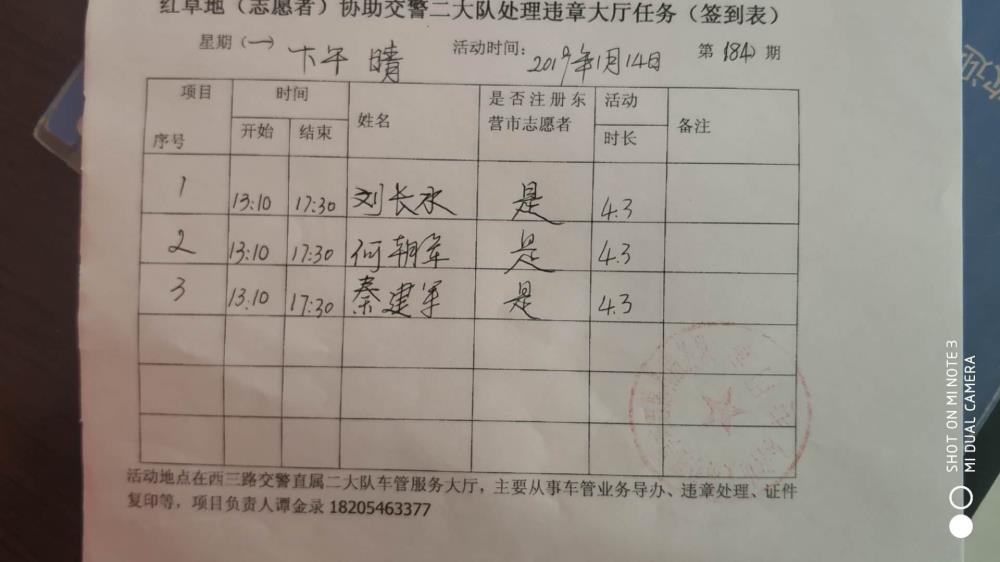 红草地（志愿者）协助交警二大队处理违章大厅任务（签到表）
星期（一） 下午 晴 活动时间：2019年1月14日 第（184）期
项目 时间 姓名 是否注册东 活动 备注
序号 开始 结束 营市志愿者 时长
1 13:10 17:30 刘长水 是 4.3
2 13:10 17:30 何朝军 是 4.3
3 13.10 17:30 秦建军 是 4.3
活动地点在西三路交警直属二大队车管服务大厅，主要从事车管业务导办、违章处理、证件
复印等，项目负责人谭金录 18205463377
SHOT ON MI NOTE 3
MI DUAL CAMERA